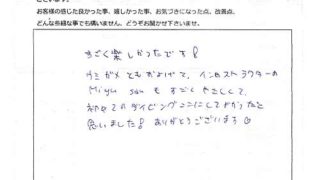 お客様の感じた良かった事、嬉しかった事、お気づきになった点、改善点、
どんな些細な事でも構いません、どうぞお聞かせ下さいませ。
すごく楽しかったです!
ウミガメともおよげて、インストラクターの
Miyu sanもすごくやさしくて、
初めてのダイビングここにしてよかったと
思いました! ありがとうございます☺